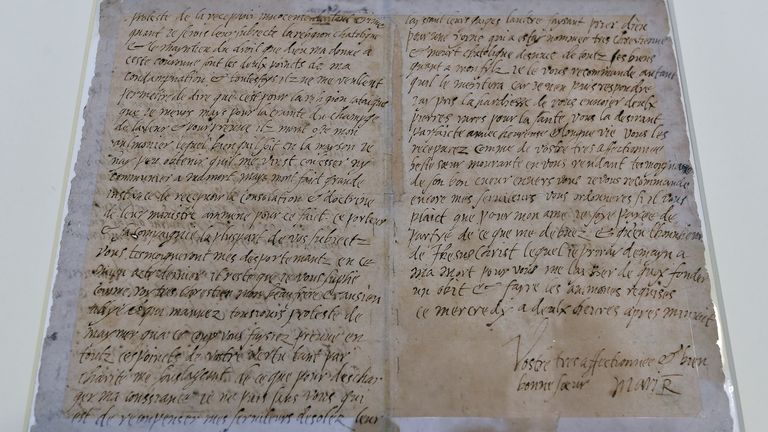 proteste de la recepvoir innocente de tout crime
quant je serois leur subjecte la religion chatolique
& le mayntien du droit que dieu ma donne a
ceste couronne sont les deulx points de ma
condampnation & toutesfoys ilz ne me veulent
permettre de dire que cest pour la religion catolique
que je meurs mays pour la crainte du champge
de la leur & pour preuve ilz mont oste mon
aulmonier lequel bien quil soit en la mayson je
nay peu obtenir quil me vinst confesser ny
communier a ma mort mays mont fait grande
instance de recepvoir la consolation & doctrine
de leur ministre ammene pour ce fait ce porteur
& sa compaignie la pluspart de vos subjectz
vous tesmoigneront mes desportemantz en ce
mien acte dernier il reste que je vous suplie
comme roy tres crestien mon beau frere & ansien
allye & qui mavvez tousjours proteste de
maymer qua ce coup vous faysiez preuve en
toutz ces points de vostre vertu tant par
charite me soulageant de ce que pour deschar
ger ma conssiance je ne puis sans vous qui
est de recompenser mes serviteurs desolez leur
laysant leurs gaiges laultre faysant prier dieu
pour une royne qui a estay nommee tres chrestienne
& meurt chatolique desnuee de toutz ses biens
quant a mon fylz je le vous recommande autant
quil le meritera car je nen puis respondre
Jay pris la hardiesse de vous envoier deulx
pierres rares pour la sante vous la desirant
parfaicte avec heureuse & longue vie vous les
recepvrez comme de vostre tres affectionnee
belle soeur mourante en vous rendant tesmoygnage
de son bon cueur envers vous je vous recommande
encore mes serviteurs vous ordonneres si il vous
plaict que pour mon ame je soye payee de
partye de ce que me debvez & quen lhonneur
de Jhesus Christ lequel je prieray demayn a
ma mort pour vous me laysser de quoy fonder
un obit & fayre les aulmosnes requises
ce mercredy a deulx heures apres minuit
Vostre tres affectionnee & bien
bonne soeur MARIE R